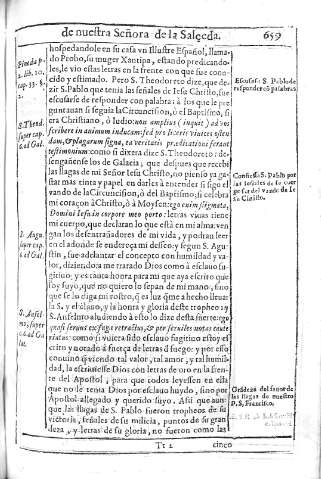 de nuestra Señora de la Salceda. 659
hospedandole en su casa vn Illustre Español, llama-
do Probo, su muger Xantipa, estando predicando-
le, le vio estas letras en la frente con que fue cono-
cido y estimado. Pero S. Theodoreto dize, que de-
zir S. Pablo que tenia las señales de Iesu Christo, fue
escusarse de responder con palabras: à los que le pre-
guntauan si seguia la Circuncision, ò el Baptismo, si
era Christiano, ò Iudio:
dam, & plagarum signa,
testimonium: como si dixera dize S. Theodoreto: de-
sengañense los de Galacia, que despues que recebi
las llagas de mi Señor Iesu Christo, no pienso ya gas-
tar mas tinta y papel en darles à entender si sigo el
vando de la Circuncision, ò del Baptismo; si celebra
mi coraçon à Christo, ò à Moysen: ego enim stigmata,
Domini Iesu in corpore meo porto: letras viuas tiene
mi cuerpo, que declaran lo que està en mi alma: ven
gan los desentrañadores de mi vida, y podran leer
en el adonde se endereça mi desseo: y segun S. Agus-
tin, fue adelantar el concepto con humildad y va-
lor, diziendo: a me tratado Dios como à esclauo su
gitiuo: y es causa honra para mi que aya escrito que
soy suyo, que no quiero lo sepan de mi mano, sino
que se lo diga mi rostro,
la S. y esclauo, y la honra y gloria deste tropheo: y
S. Anselmo aludiendo à esto dize desta suerte: ego
quasi seruus ex fuga retractus, & per seruiles notas
como si viuiera sido esclauo fugitiuo estoy es
crito y notado à fuerça de letras d fuego: y por esso
contino que viendo tal valor, tal amor, y tal humil-
dad, la escriuiesse Dios con letras de oro en la fren-
te del Apostol, para que todos leyessen en ella
que no le tenia Dios por esclauo huydo, sino por
Apostol allegado y querido suyo. Assi que aun
que las llagas de S. Pablo fueron tropheos de su
victoria, señales de su milicia, puntos de su gran
deza, y letras de su gloria, no fueron como las
Tt 2 cinco
lib. 10.
cap. 33.
S. Theod.
super cap.
6. ad Gal.
S. Augu.
super cap.
6. ad Gal.
S. Ansel-
mo, super
6. ad Ga-
lat.
Escusase S. Pablo de
responder cō palabras
Confiessa S. Pablo por
las señales de su cuer
po ser del vando de Ie
su Christo.
Grãdeza del fauor de
las llagas de nuestro
P. S. Francisco.